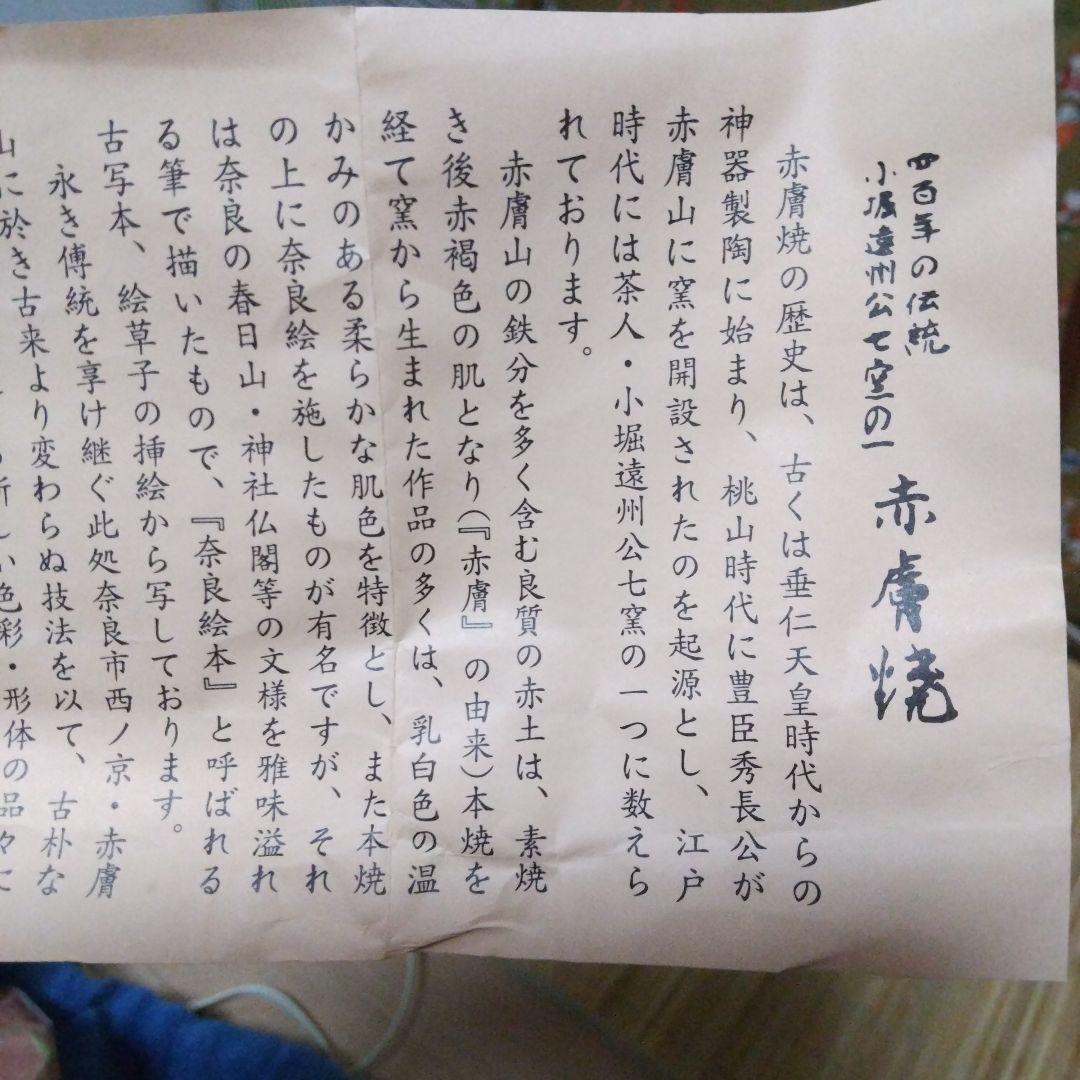 四百年の伝統
小堀遠州公七窯の一
赤膚焼
赤膚焼の歴史は、古くは垂仁天皇時代からの
神器製陶に始まり、桃山時代に豊臣秀長公が
赤膚山に窯を開設されたのを起源とし、江戸
時代には茶人・小堀遠州公七窯の一つに数えら
れております。
赤膚山の鉄分を多く含む良質の赤土は、素焼
き後赤褐色の肌となり(『赤膚』の由来)本焼を
経て窯から生まれた作品の多くは、乳白色の温
かみのある柔らかな肌色を特徴とし、また本焼
の上に奈良絵を施したものが有名ですが、それ
は奈良の春日山・神社仏閣等の文様を雅味溢れ
る筆で描いたもので、『奈良絵本』と呼ばれる
古写本、絵草子の挿絵から写しております。
永き傳統を享け継ぐ此処奈良市西ノ京・赤膚
山に於き古来より変わらぬ技法を以て、古朴な
新しい色彩・形体の品々に